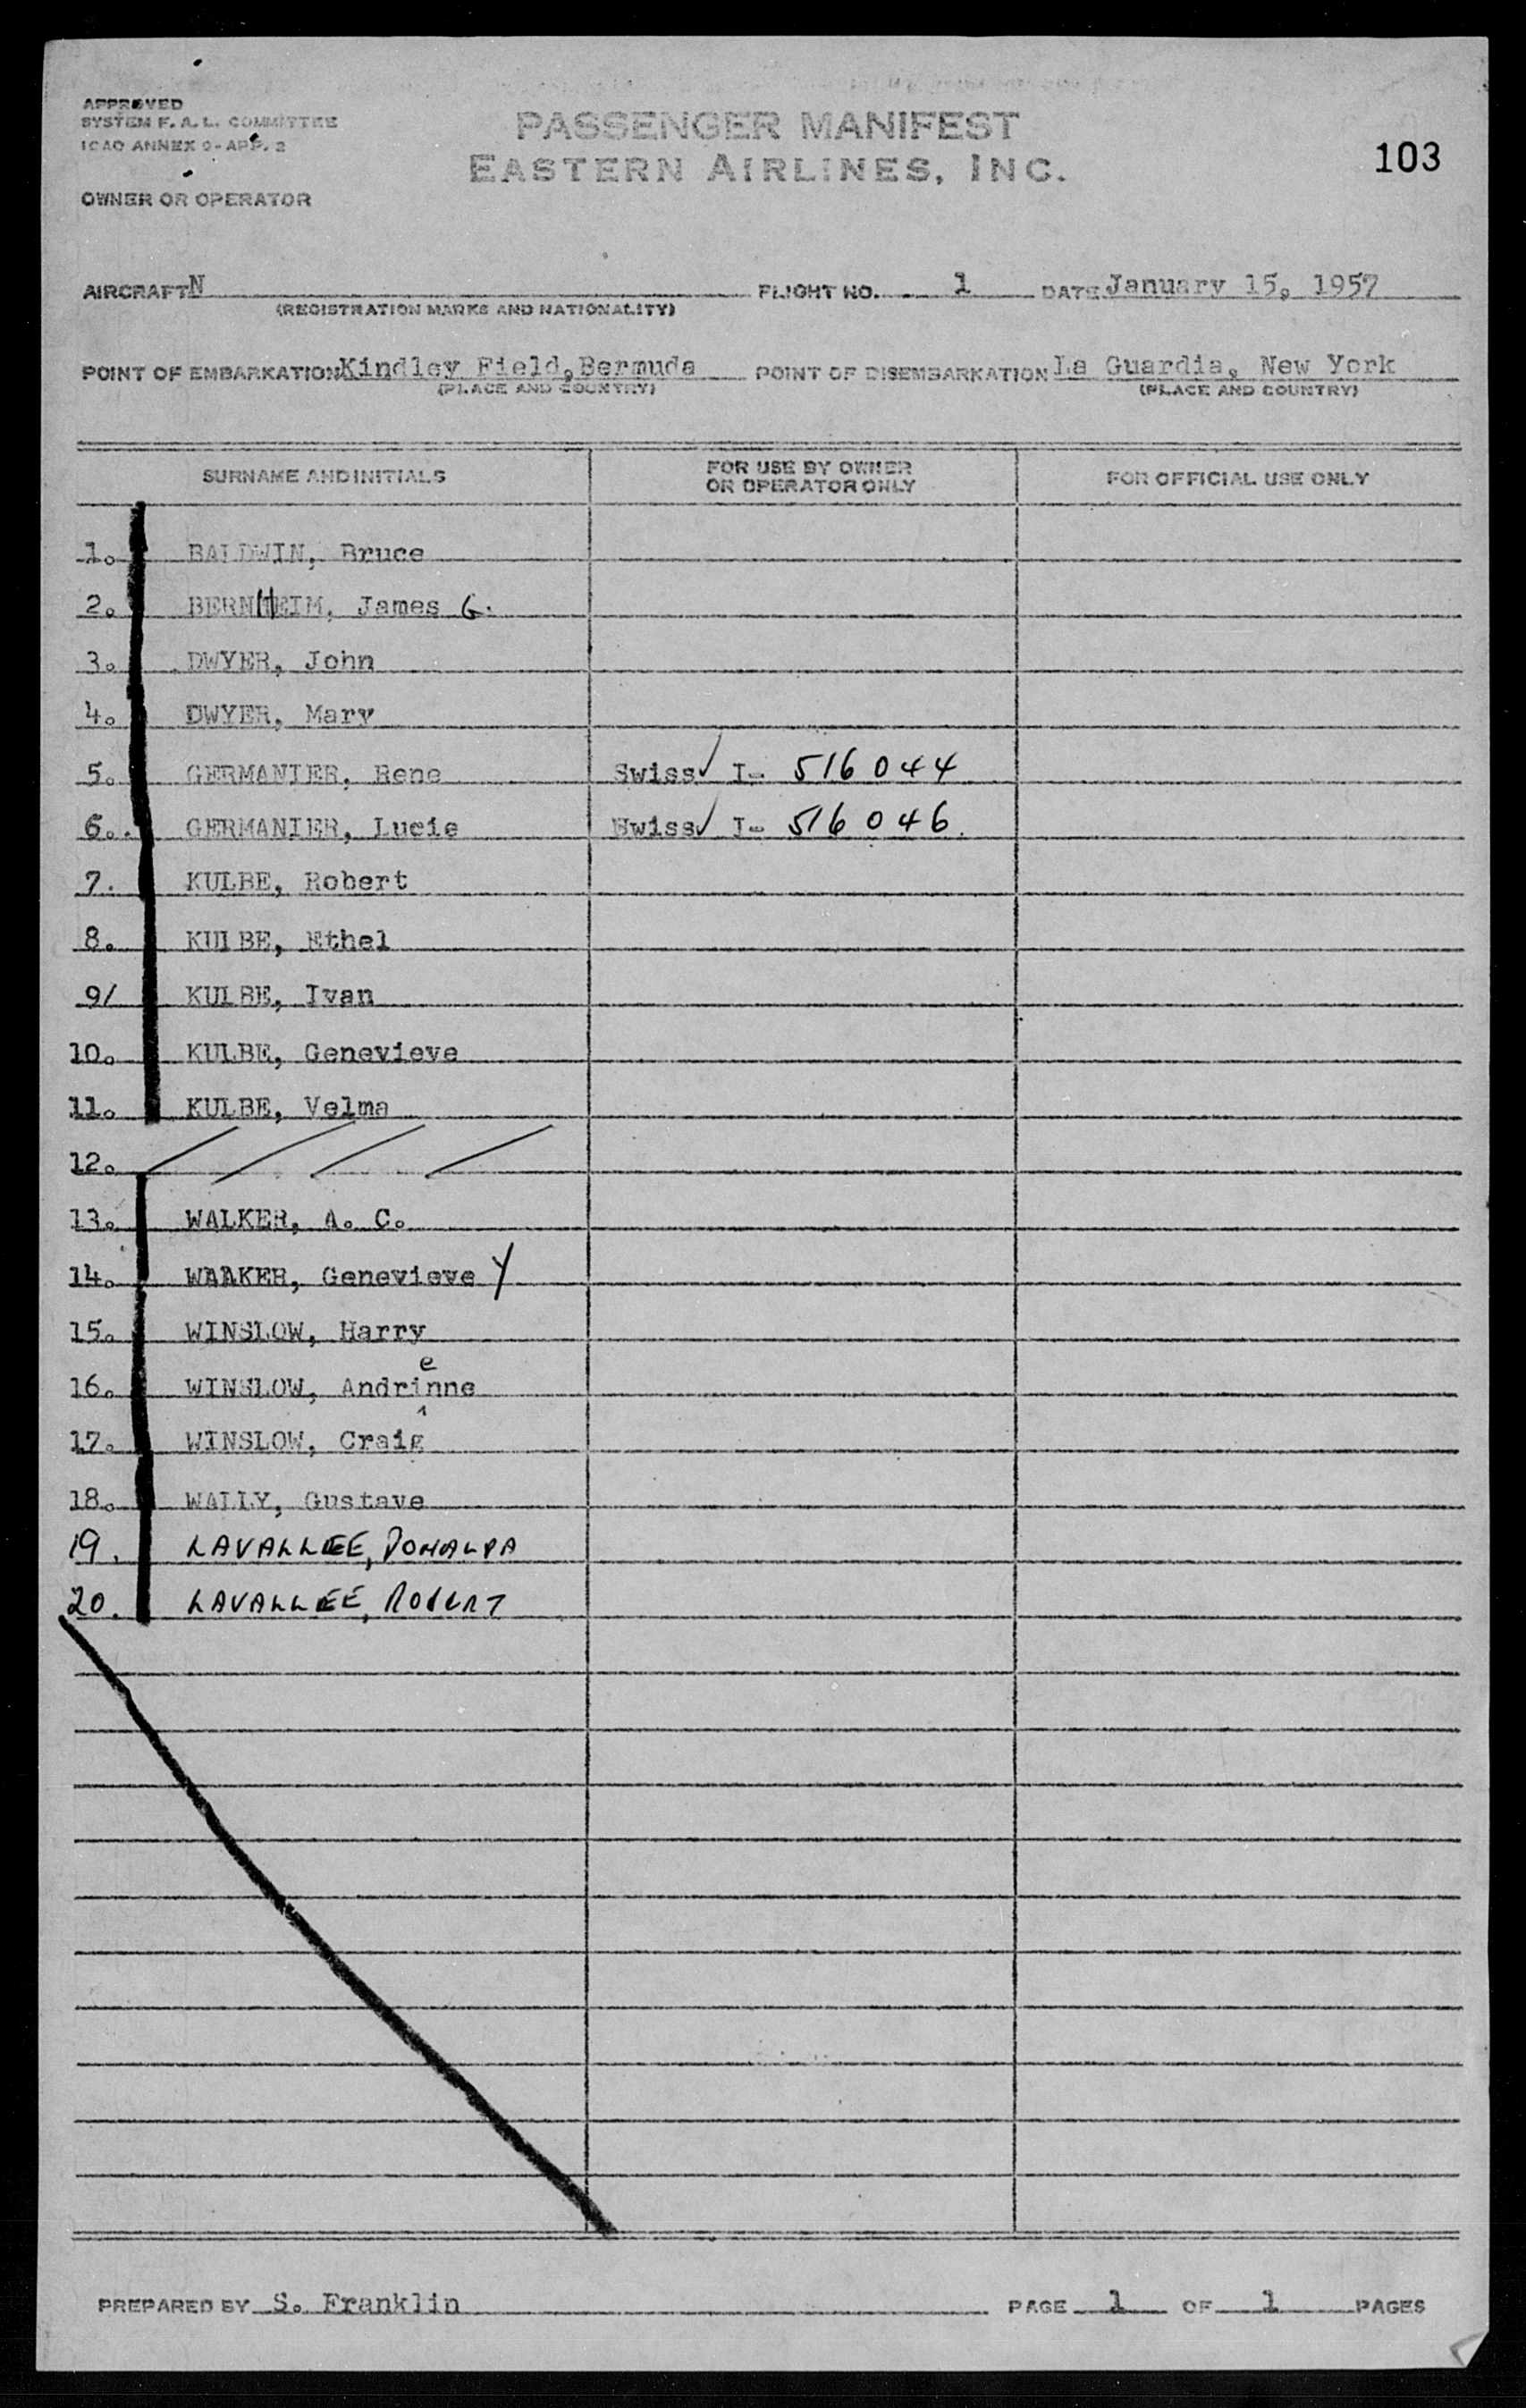 APPROVED
SYSTEM F. A. L. COMMITTEE
ICAO ANNEX 9-APP. 2
OWNER OR OPERATOR
PASSENGER MANIFEST
EASTERN AIRLINES, INC.
103
AIRCRAFT N FLIGHT NO. 1 DATE January 15, 1957
(REGISTRATION MARKS AND NATIONALITY)
POINT OF EMBARKATION Kindley Field, Bermuda POINT OF DISEMBARKATION La Guardia, New York
(PLACE AND COUNTRY) (PLACE AND COUNTRY)
SURNAME AND INITIALS FOR USE BY OWNER OR OPERATOR ONLY FOR OFFICIAL USE ONLY
1. BALDWIN, Bruce
2. BERNHEIM, James G.
3. DWYER, John
4. DWYER, Mary
5. GERMANIER, Rene Swiss✓ I- 516044
6. GERMANIER, Lucie Swiss✓ I- 516046.
7. KULBE, Robert
8. KULBE, Ethel
9/ KULBE, Ivan
10. KULBE, Genevieve
11. KULBE, Velma
12. / / / /
13. WALKER, A. C.
14. WALKER, Genevieve Y
15. WINSLOW, Harry
16. WINSLOW, Andrienne
17. WINSLOW, Craig
18. WALLY, Gustave
19. LAVALLEE, DONALDA
20. LAVALLEE, ROBERT
PREPARED BY S. Franklin PAGE 1 OF 1 PAGES